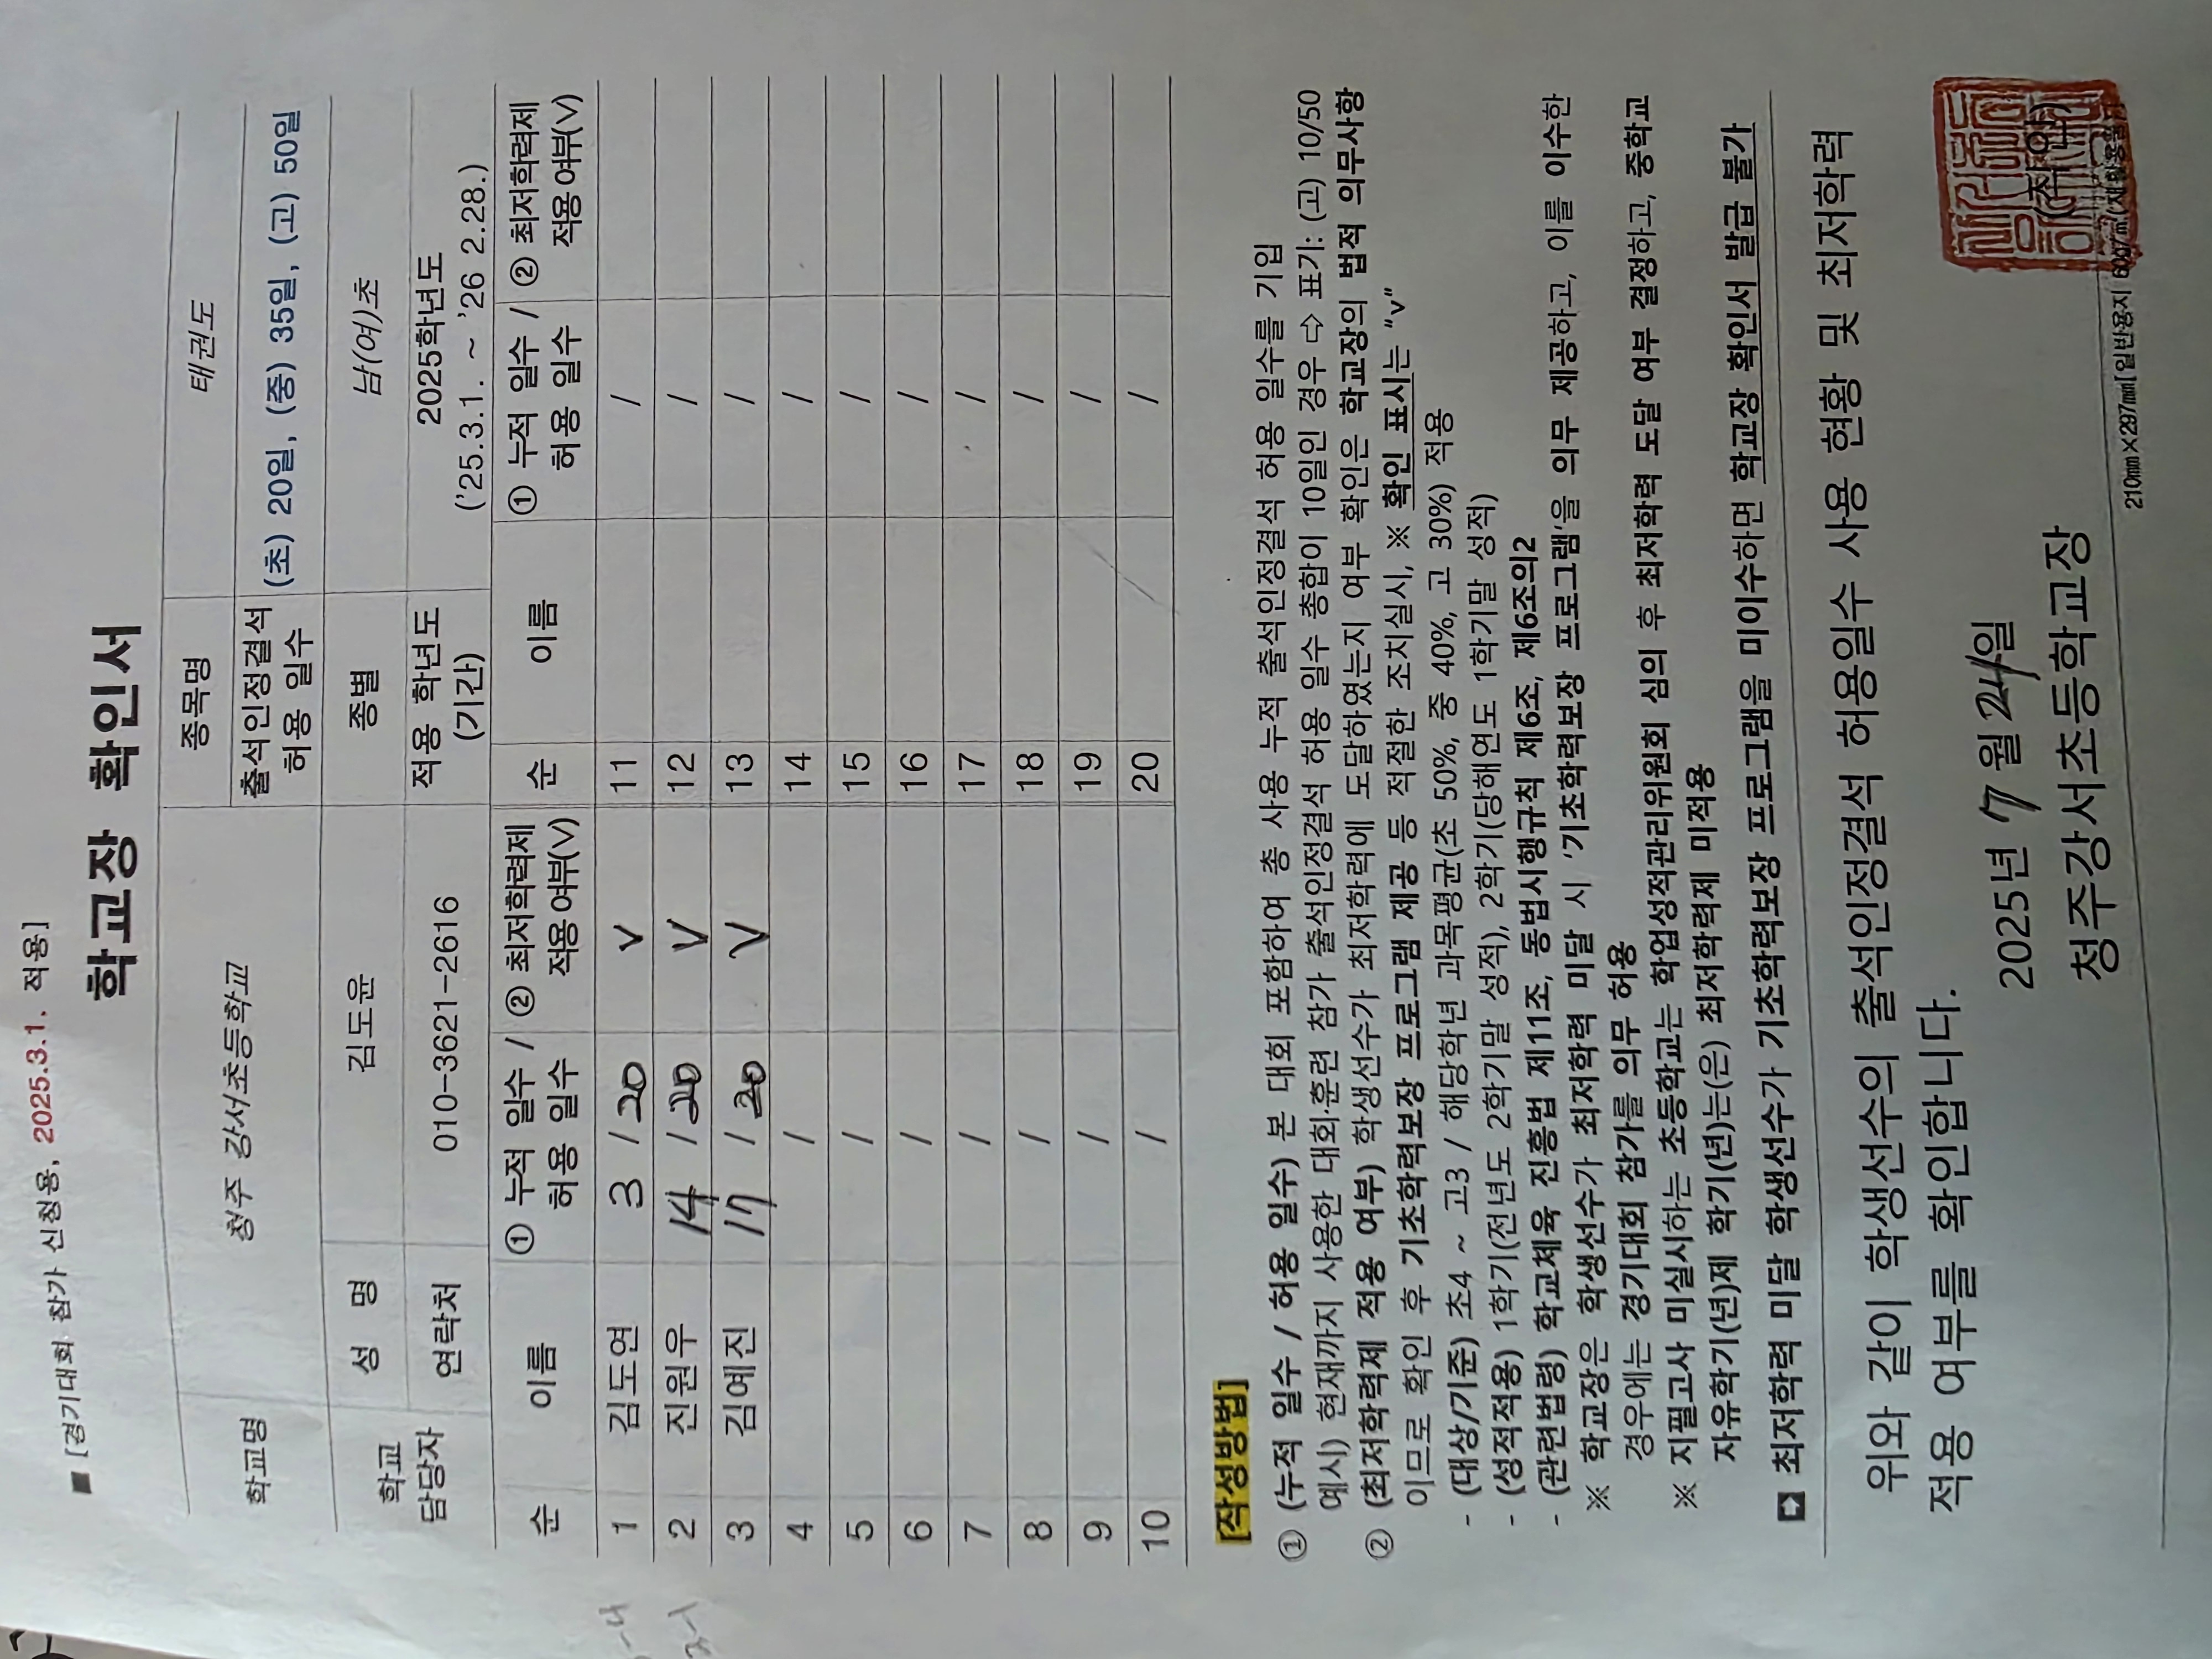 ■ [경기대회 참가 신청용, 2025.3.1. 적용]
학교장 확인서
학교명 청주 강서초등학교 종목명 태권도
출석인정결석 허용 일수 (초) 20일, (중) 35일, (고) 50일
학교 담당자 성 명 김도윤 종별 남(여)초
연락처 010-3621-2616 적용 학년도 (기간) 2025학년도 ('25.3.1. ~ '26 2.28.)
순 이름 ① 누적 일수 / 허용 일수 ② 최저학력제 적용여부(V) 순 이름 ① 누적 일수 / 허용 일수 ② 최저학력제 적용여부(V)
1 김도연 3 / 20 V 11 /
2 진원우 14 / 20 V 12 /
3 김예진 17 / 20 V 13 /
4 / 14 /
5 / 15 /
6 / 16 /
7 / 17 /
8 / 18 /
9 / 19 /
10 / 20 /
[작성방법]
① (누적 일수 / 허용 일수) 본 대회 포함하여 총 사용 누적 출석인정결석 허용 일수를 기입
예시) 현재까지 사용한 대회·훈련 참가 출석인정결석 허용 일수 총합이 10일인 경우 ⇨ 표기: (고) 10/50
② (최저학력제 적용 여부) 학생선수가 최저학력에 도달하였는지 여부 확인은 학교장의 법적 의무사항
이므로 확인 후 기초학력보장 프로그램 제공 등 적절한 조치실시, ※ 확인 표시는 "v"
- (대상/기준) 초4 ~ 고3 / 해당학년 과목평균(초 50%, 중 40%, 고 30%) 적용
- (성적적용) 1학기(전년도 2학기말 성적), 2학기(당해연도 1학기말 성적)
- (관련법령) 학교체육 진흥법 제11조, 동법시행규칙 제6조, 제6조의2
※ 학교장은 학생선수가 최저학력 미달 시 '기초학력보장 프로그램'을 의무 제공하고, 이를 이수한
경우에는 경기대회 참가를 의무 허용
※ 지필고사 미실시하는 초등학교는 학업성적관리위원회 심의 후 최저학력 도달 여부 결정하고, 중학교
자유학기(년)제 학기(년)는(은) 최저학력제 미적용
최저학력 미달 학생선수가 기초학력보장 프로그램을 미이수하면 학교장 확인서 발급 불가
위와 같이 학생선수의 출석인정결석 허용일수 사용 현황 및 최저학력
적용 여부를 확인합니다.
2025년 7월 24일
청주강서초등학교장 (직인)
210㎜×297㎜[일반용지 60g/㎡(재활용품)]